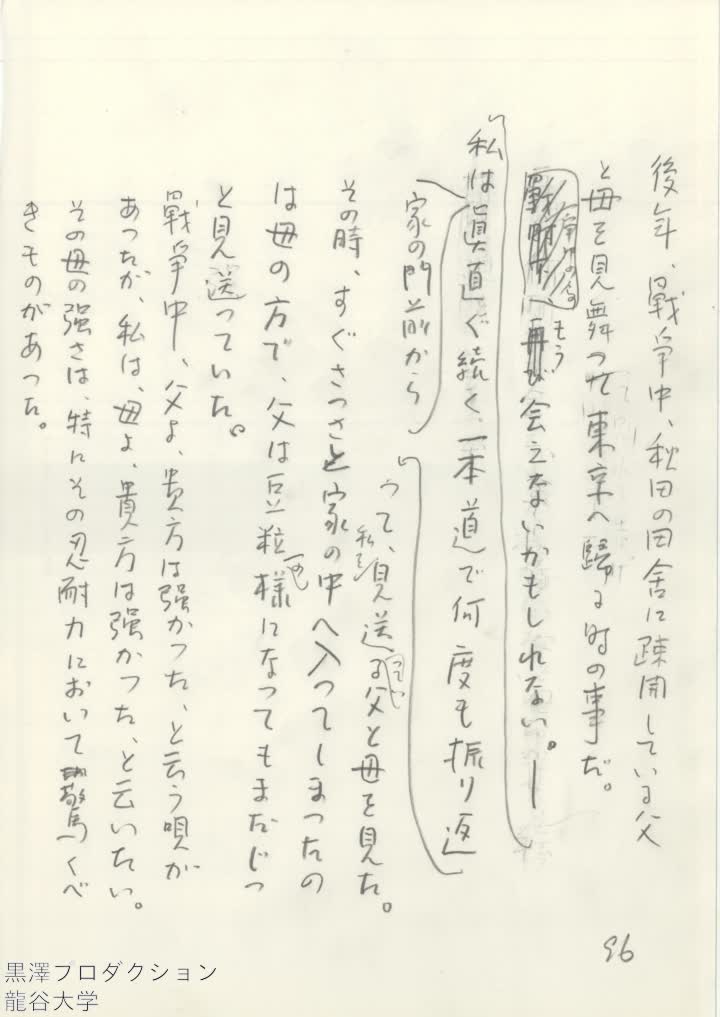 後年、戰爭中、秋田の田舎に疎開している父
と母を見舞つて東京へ歸る時の事だ。
もう会えないかもしれない。ー
私は眞直ぐ続く、一本道で何度も振り返
家の門前から
って、私を見送っている父と母を見た。
その時、すぐさつさと家の中へ入つてしまつたの
は母の方で、父は豆粒の様になってもまだじっ
と見送っていた。
戰爭中、父よ、貴方は强かつた、と云う唄が
あつたが、私は、母よ、貴方は强かつた、と云いたい。
その母の强さは、特にその忍耐力において驚くべ
きものがあつた。
96
黒澤プロダクション
龍谷大学